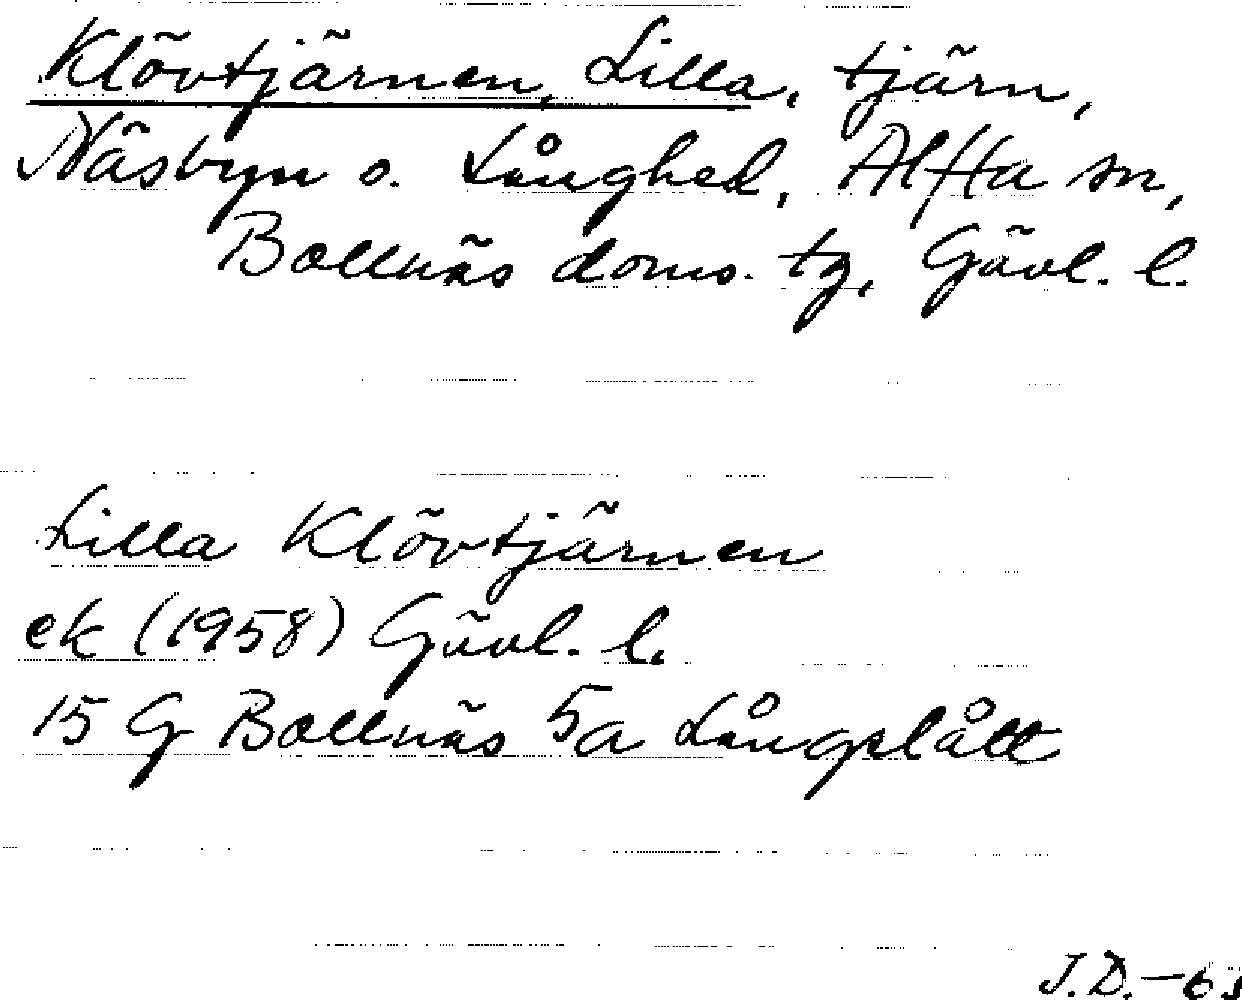 Klövtjärnen, Lilla, tjärn,
Näsbyn o. Långhed, Alfta sn,
Bollnäs doms. tg, Gävl. l.
Lilla Klövtjärnen
ek (1958) Gävl. l.
15 G Bollnäs 5a Långslått
J.D.